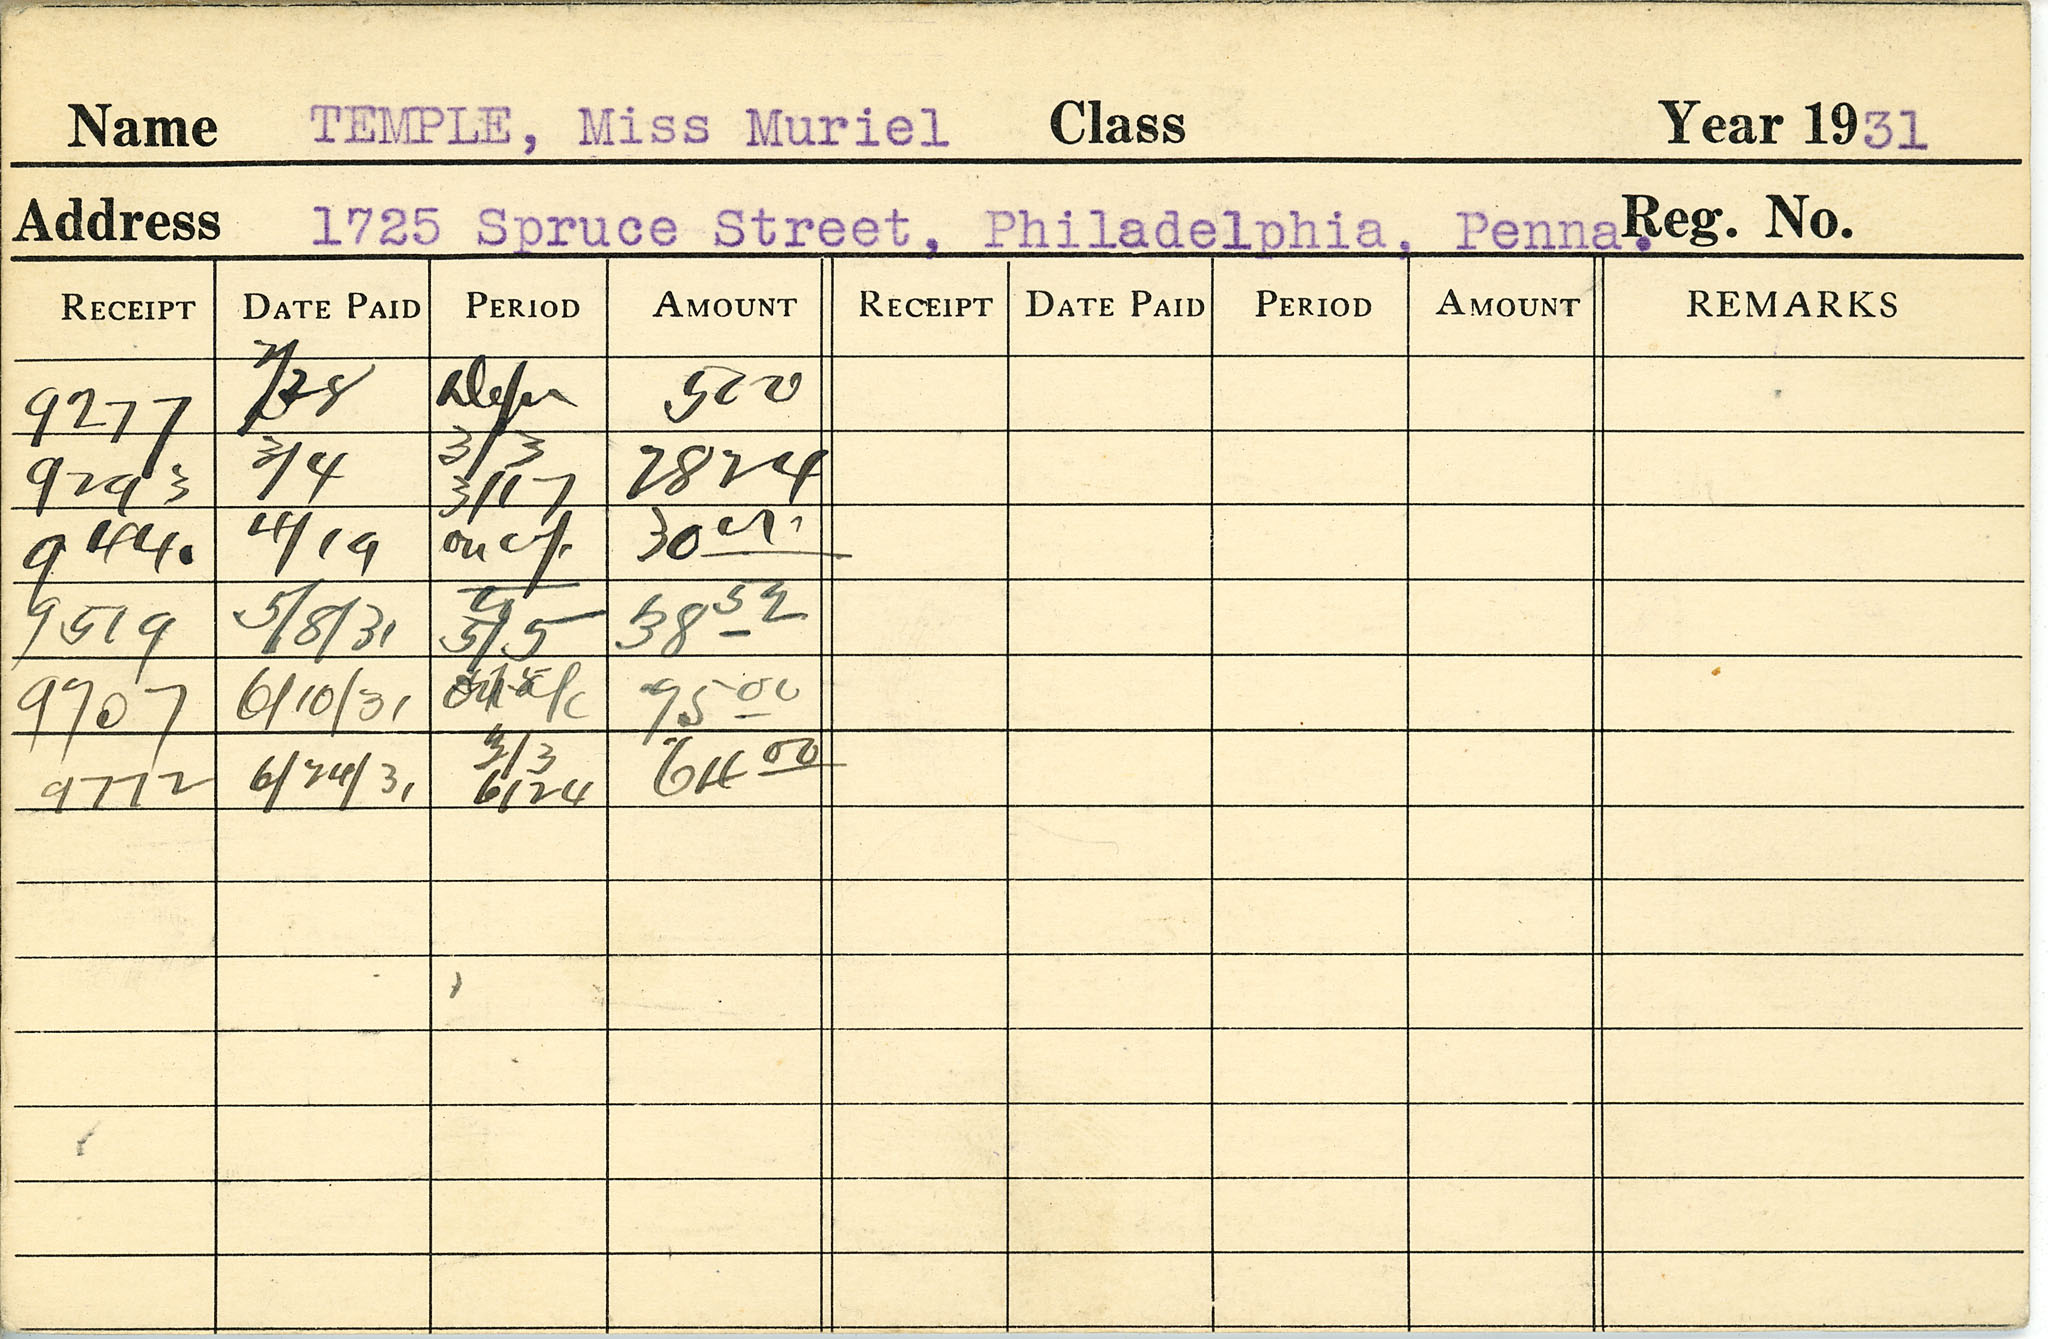 Name TEMPLE, Miss Muriel Class Year 1931
Address 1725 Spruce Street, Philadelphia, Penna. Reg. No.
RECEIPT DATE PAID PERIOD AMOUNT RECEIPT DATE PAID PERIOD AMOUNT REMARKS
9277 500
9293 3/4 3/3 2824
3/17
4/19 on a/c 30
9519 5/8/31 5/5 38 52
9707 6/10/31 on a/c 95 00
9772 6/24/31 3/3 64 00
6/24